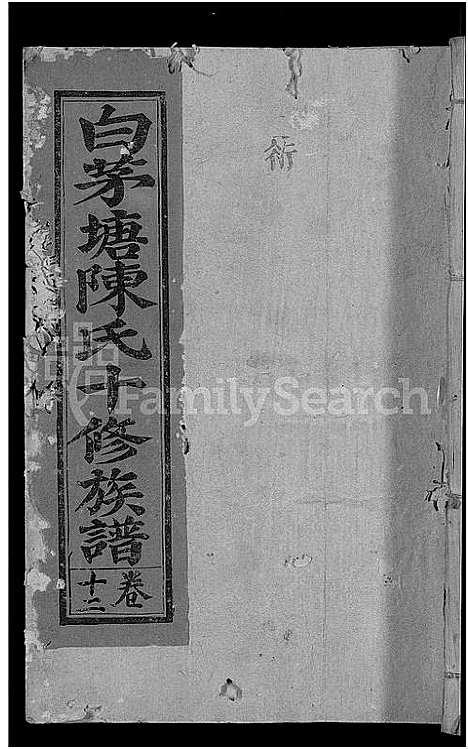 白茅塘陳氏十修族譜
卷
十二
FamilySearch